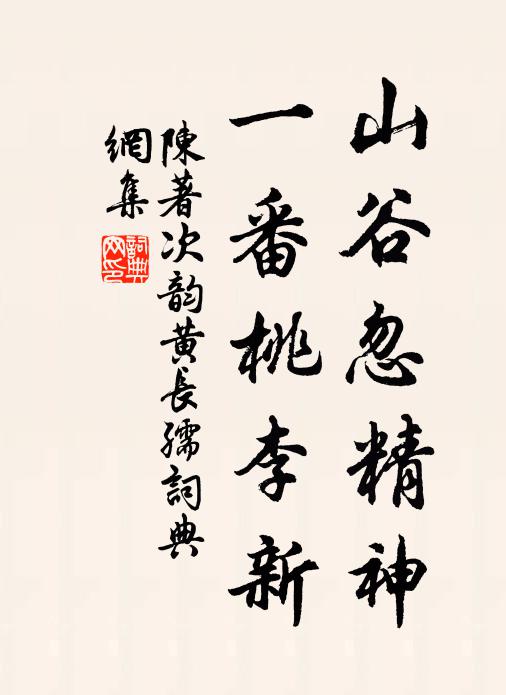 山谷忽精神
一番桃李新
陳著次韵黄長孺詞典
網集
詞典
网印